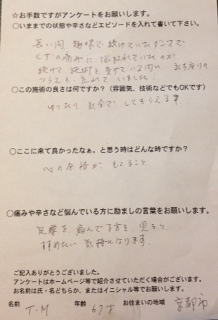 ☆お手数ですがアンケートをお願いします。
○いままでの状態や辛さなどエピソードを入れて書いて下さい。
長い間 趣味で続けていたダンスで
ひざの痛みに悩まされていたのが
続けて施術を受けている内に
つらさも
○この施術の良さは何ですか? (雰囲気、技術などでもOKです)
ゆったり 気楽にしてもらえます
○ここに来て良かったなぁ、と思う時はどんな時ですか?
心の余裕がもてること
○痛みや辛さなど悩んでいる方に励ましの言葉をお願いします。
気持になります。
ご記入ありがとうございました。
アンケートはホームページ等で紹介させていただく場合がございます。
お名前は氏・名どちらか、またはイニシャル等でお願いします。
名前 T・M 年齢 67才 お住まいの地域 京都市